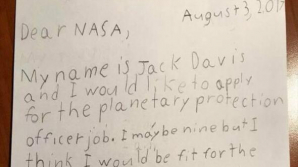 August 3, 201
Dear NASA,
My name is Jack Davis
and I would like to apply
for the planetary protection
officer job. I may be nine but I
think I would be fit for the